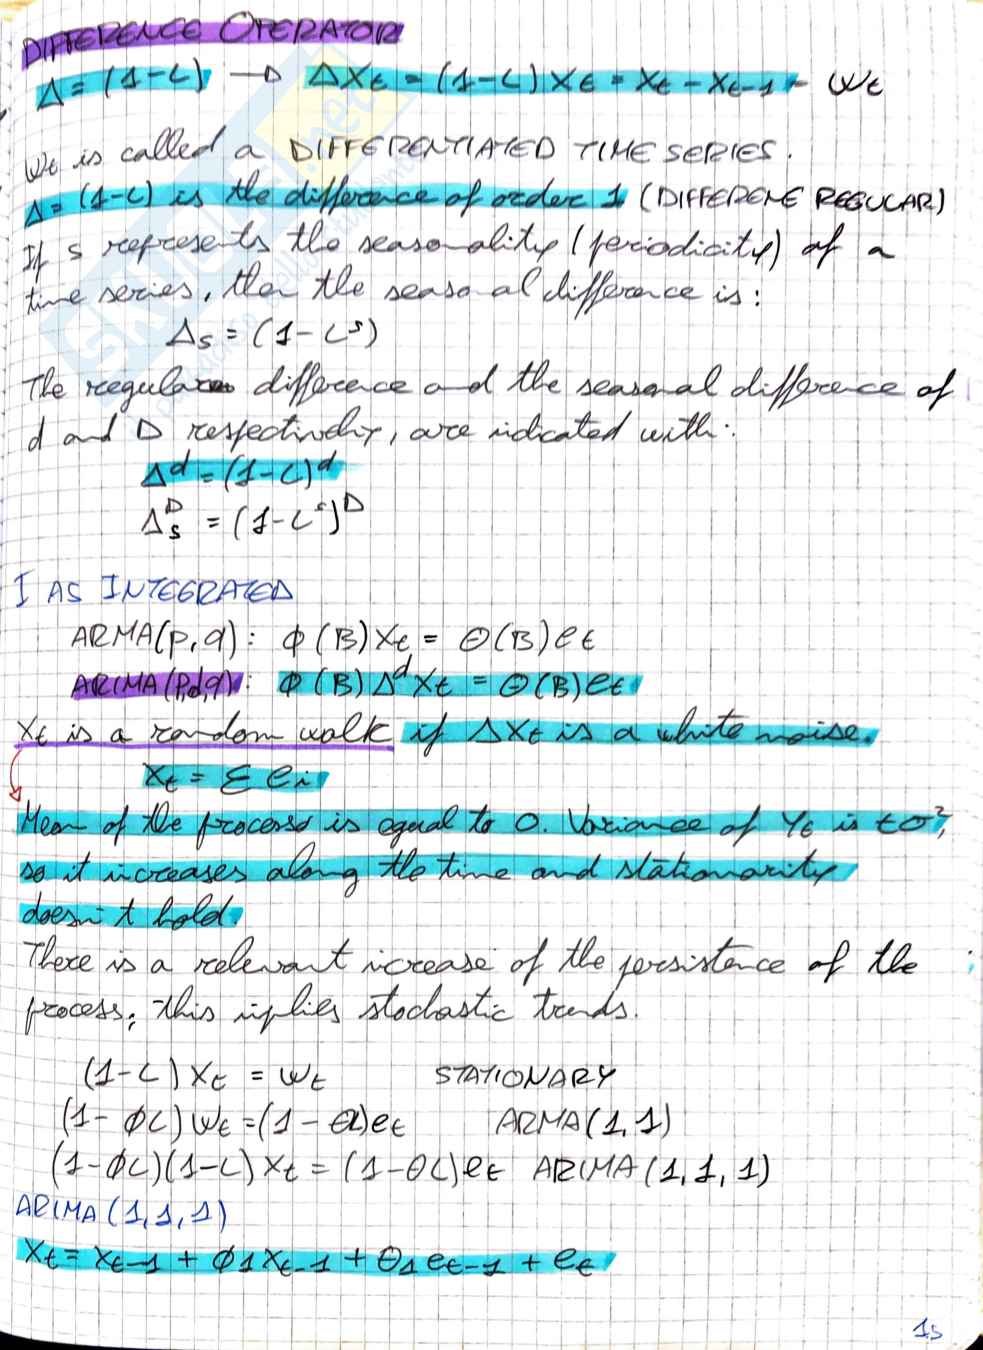 DIFFERENCE OPERATOR
Δ = (1-L) → ΔXt = (1-L) Xt = Xt - Xt-1 = ωt
ωt is called a DIFFERENTIATED TIME SERIES.
Δ = (1-L) is the difference of order 1 (DIFFERENE REGULAR)
If s represents the seasonality (periodicity) of a
time series, then the seasonal difference is:
Δs = (1 - L^s)
The regular difference and the seasonal difference of
d and D respectively, are indicated with:
Δ^d = (1-L)^d
Δs^D = (1-L^s)^D
I AS INTEGRATED
ARMA(p,q): ϕ(B)Xt = Θ(B)et
ARIMA(p,d,q): ϕ(B)Δ^d Xt = Θ(B)et
Xt is a random walk if ΔXt is a white noise.
Xt = Σ ei
Mean of the process is equal to 0. Variance of Yt is tσ²,
so it increases along the time and stationarity
doesn't hold.
There is a relevant increase of the persistence of the
process; this implies stochastic trends.
(1-L) Xt = ωt STATIONARY
(1-ϕL) ωt = (1-θL)et ARMA(1,1)
(1-ϕL)(1-L) Xt = (1-θL)et ARIMA(1,1,1)
ARIMA(1,1,1)
Xt = Xt-1 + ϕ1Xt-1 + Θ1et-1 + et
15